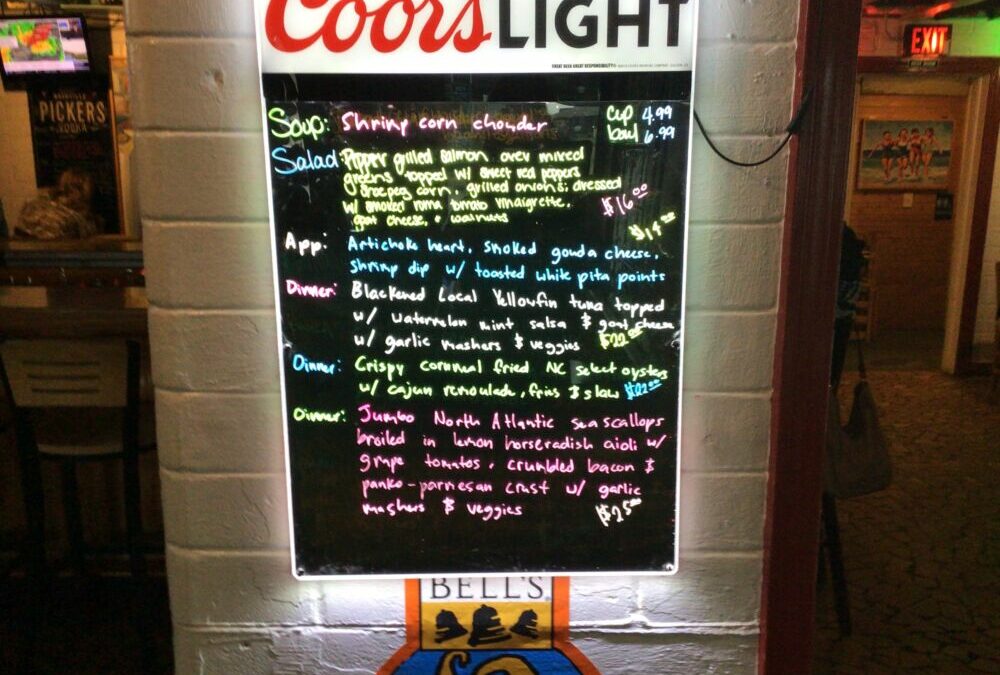 Coors LIGHT
GREAT BEER GREAT RESPONSIBILITY
Soup: Shrimp corn chowder cup 4.99
bowl 6.99
Salad: Pepper grilled salmon over mixed
greens topped w/ sweet red peppers
shoepeg corn, grilled onions; dressed
w/ smoked roma tomato vinaigrette, $16.00
goat cheese, & walnuts
$14.00
App: Artichoke heart, smoked gouda cheese,
shrimp dip w/ toasted white pita points
Dinner: Blackened Local Yellowfin tuna topped
w/ watermelon mint salsa & goat cheese
w/ garlic mashers & veggies $22.00
Dinner: Crispy cornmeal fried NC select oysters
w/ cajun remoulade, fries & slaw $22.00
Dinner: Jumbo North Atlantic sea scallops
broiled in lemon horseradish aioli w/
grape tomatos, crumbled bacon &
panko-parmesan crust w/ garlic
mashers & veggies $25.00
BELL'S
PICKERS
VODKA
EXIT